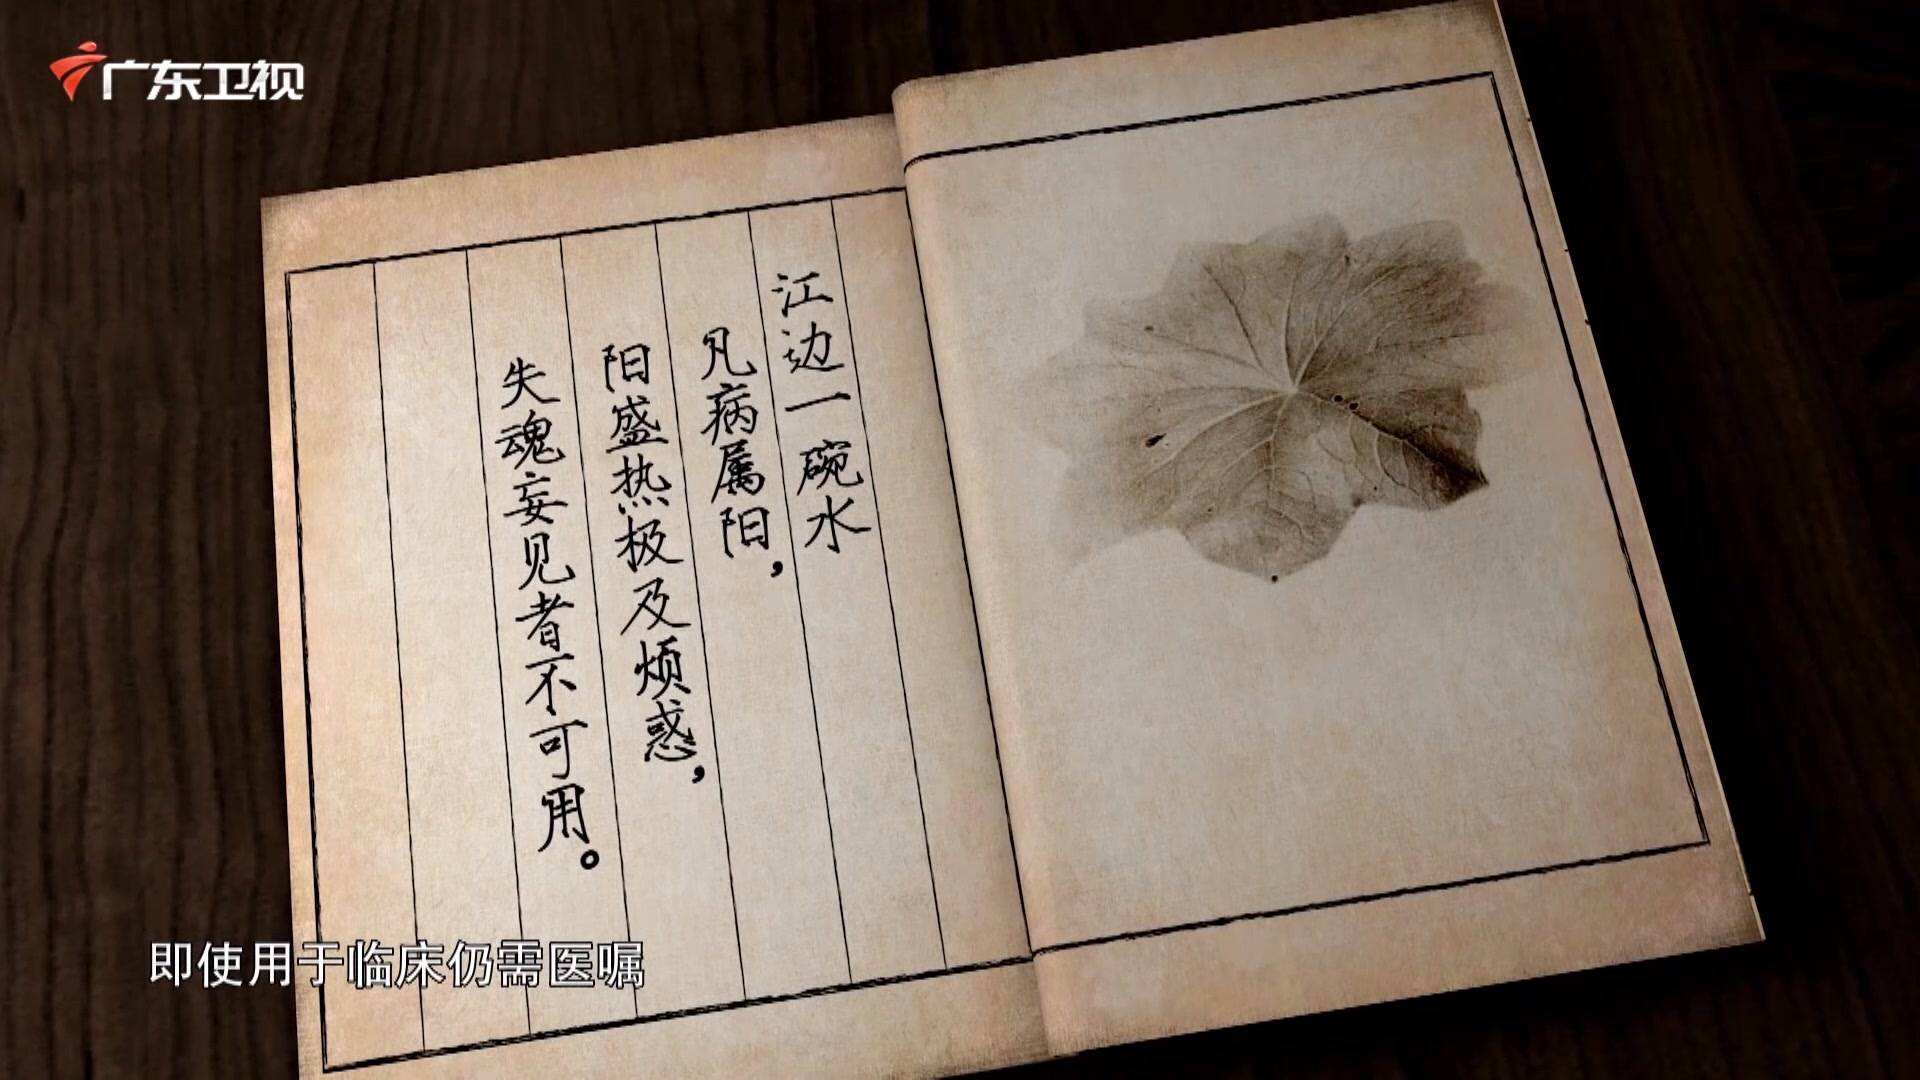 广东卫视
江边一碗水
凡病属阳，
阳盛热极及烦惑，
失魂妄见者不可用。
即使用于临床仍需医嘱